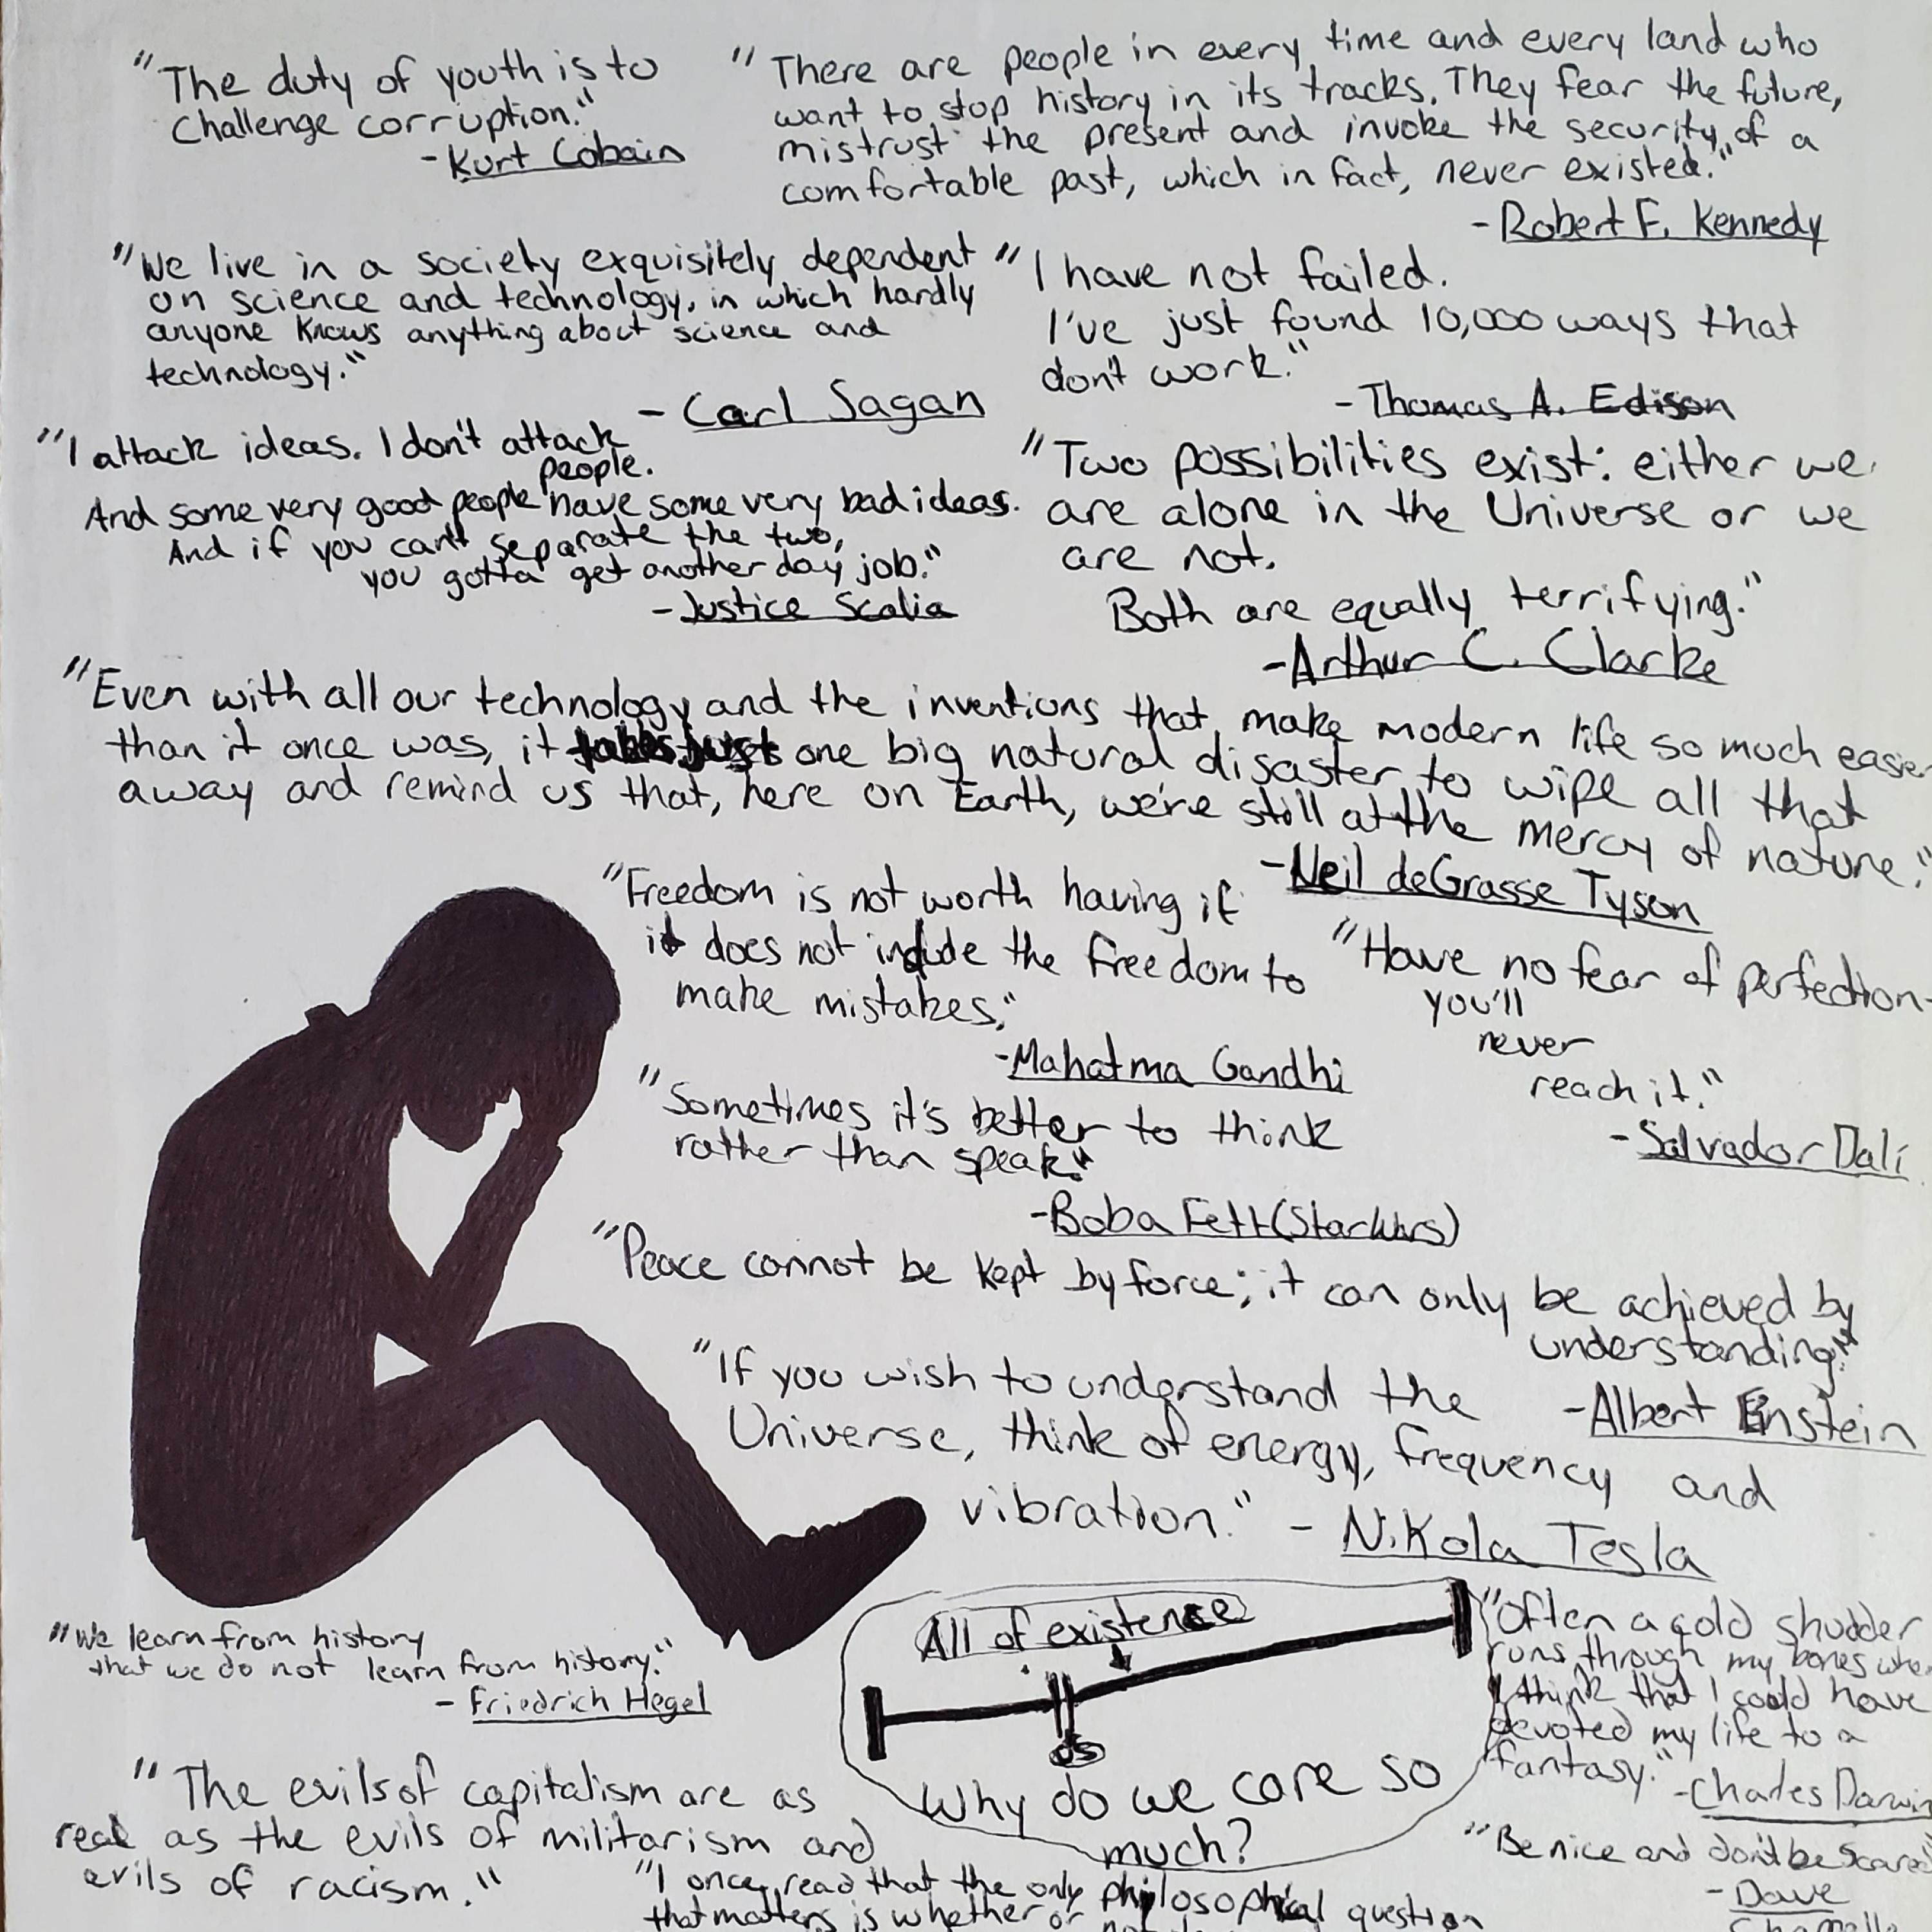 "The duty of youth is to
Challenge corruption."
- Kurt Cobain
"There are people in every time and every land who
want to stop history in its tracks. They fear the future,
mistrust the present and invoke the security of a
comfortable past, which in fact, never existed."
- Robert F. Kennedy
"We live in a society exquisitely dependent
on science and technology, in which hardly
anyone knows anything about science and
technology."
- Carl Sagan
"I have not failed.
I've just found 10,000 ways that
don't work."
- Thomas A. Edison
"I attack ideas. I don't attack
people.
And some very good people have some very bad ideas.
And if you can't separate the two,
you gotta get another day job."
- Justice Scalia
"Two possibilities exist: either we
are alone in the Universe or we
are not.
Both are equally terrifying."
- Arthur C. Clarke
"Even with all our technology and the inventions that make modern life so much easier
than it once was, it takes just one big natural disaster to wipe all that
away and remind us that, here on Earth, we're still at the mercy of nature."
- Neil deGrasse Tyson
"Freedom is not worth having if
it does not include the freedom to
make mistakes."
- Mahatma Gandhi
"Have no fear of perfection-
you'll
never
reach it."
- Salvador Dalí
"Sometimes it's better to think
rather than speak."
- Boba Fett (Star Wars)
"Peace cannot be kept by force; it can only be achieved by
understanding."
- Albert Einstein
"If you wish to understand the
Universe, think of energy, frequency and
vibration." - Nikola Tesla
"We learn from history
that we do not learn from history."
- Friedrich Hegel
All of existence
us
Why do we care so
much?
"Often a cold shudder
runs through my bones when
I think that I could have
devoted my life to a
fantasy."
- Charles Darwin
"The evils of capitalism are as
real as the evils of militarism and
evils of racism."
"Be nice and don't be scared"
- Dave
"I once read that the only philosophical question
that matters is whether or